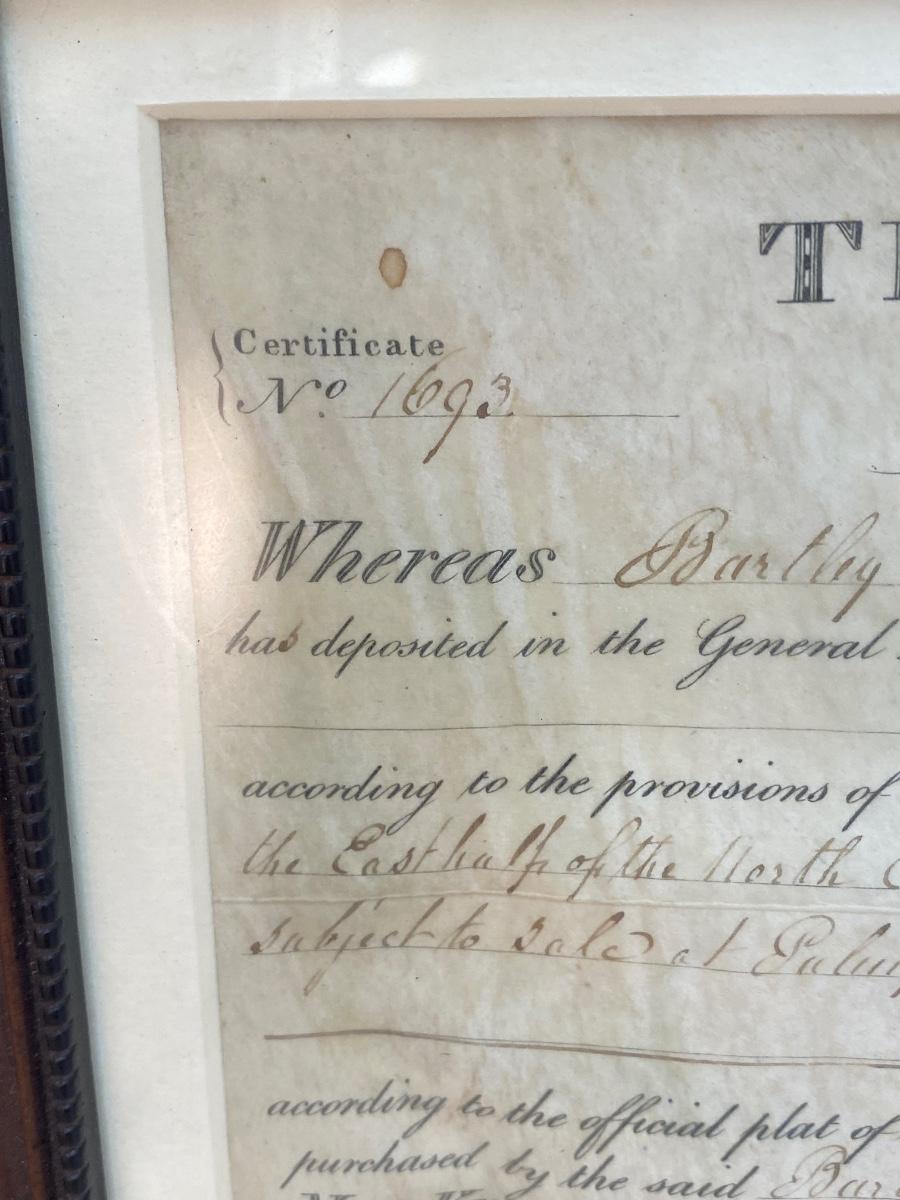 T
Certificate
No. 1693
Whereas Bartley
has deposited in the General
according to the provisions of
the East half of the North
subject to sale at
according to the official plat of
purchased by the said